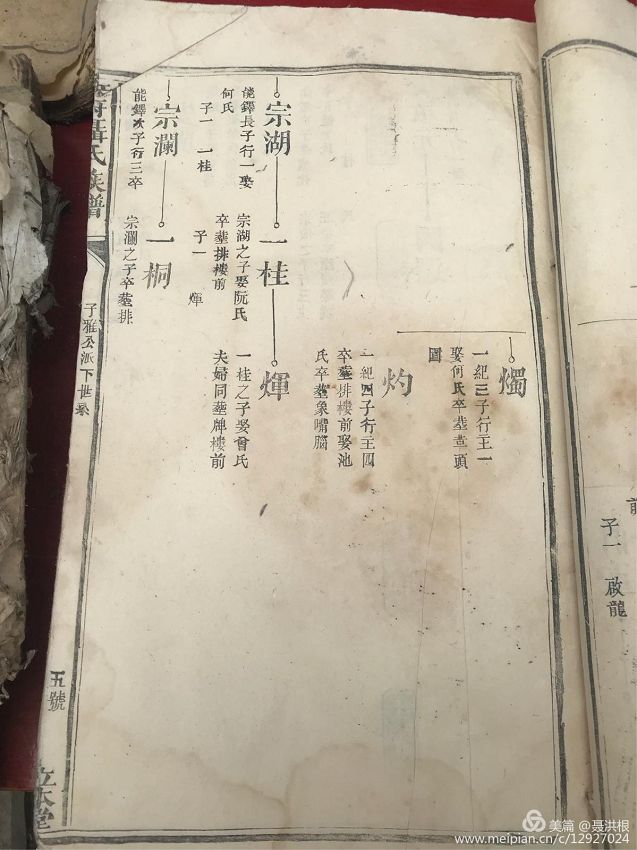 燭
一紀三子行主一
娶何氏卒塟草頭
圖
灼
一紀四子行主四
卒塟排樓前娶池
氏卒塟象嘴腦
宗湖
能鐸長子行一娶
何氏
子一 一桂
一桂
宗湖之子娶阮氏
卒塟排樓前
子一 煇
煇
一桂之子娶曾氏
夫婦同塟牌樓前
宗瀾
能鐸次子行三卒
一桐
宗瀾之子卒塟排
氏族譜
子雅公派下世系
五號
立本堂
子一 啟龍
美篇 @聂洪根
www.meipian.cn/c/12927024